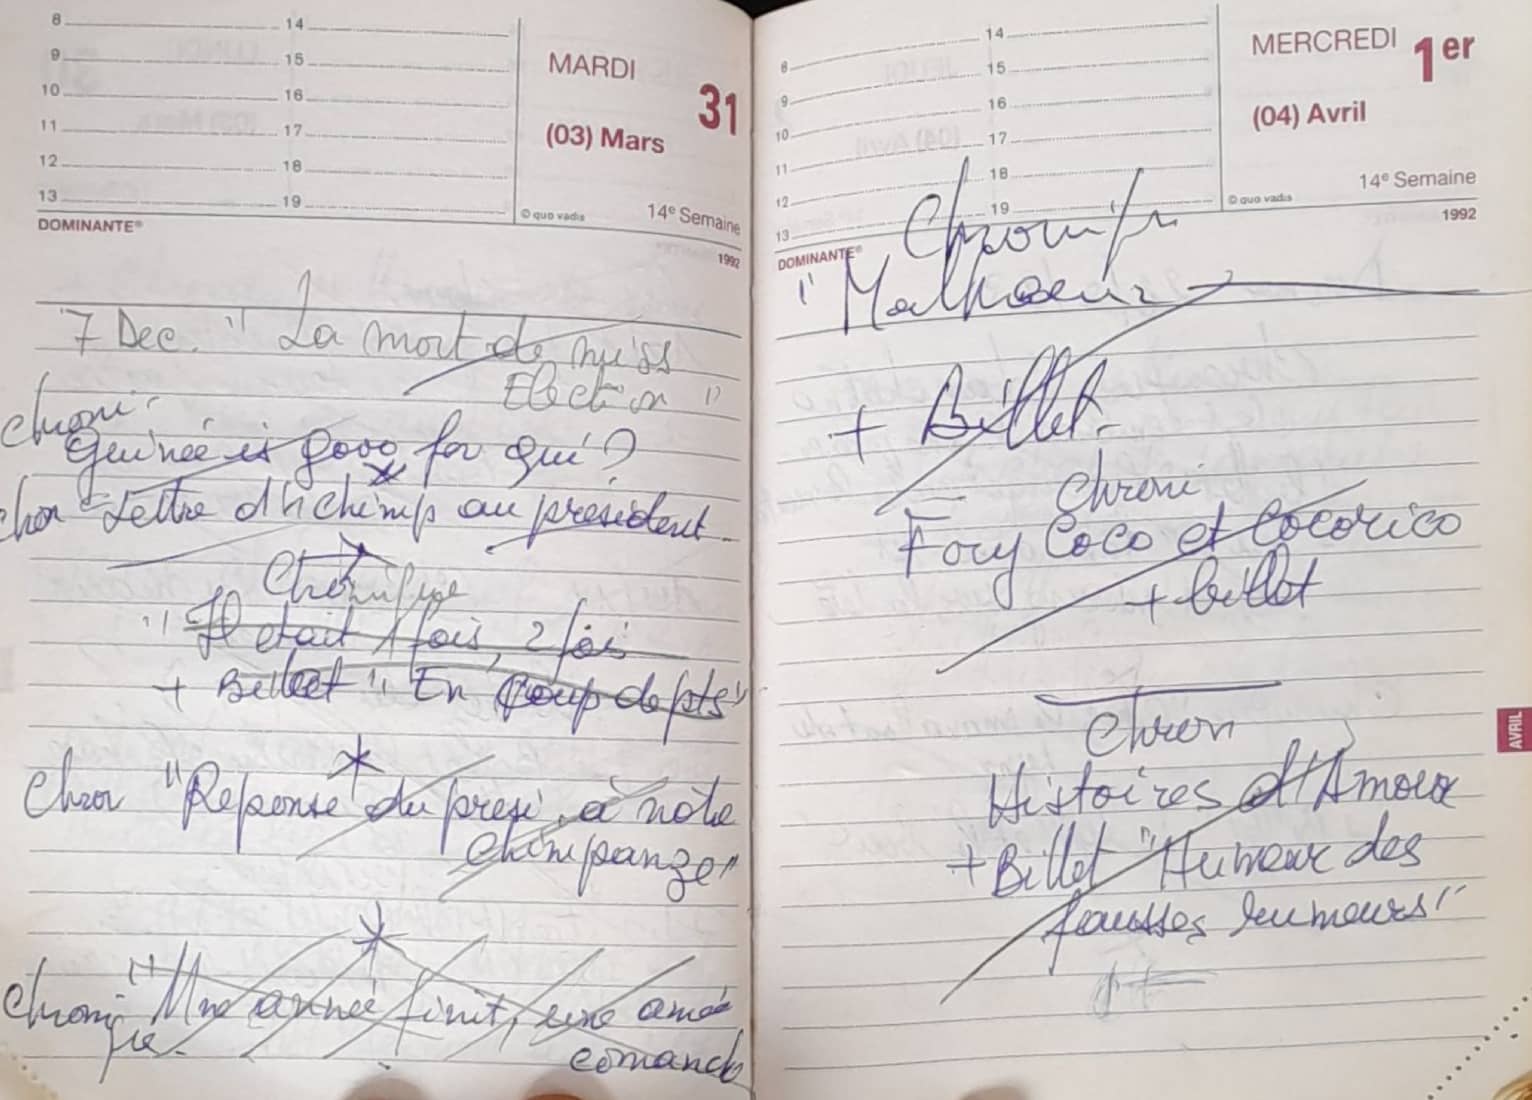 8 14
9 15
10 16
11 17
12 18
13 19
MARDI 31
(03) Mars
© quo vadis
14e Semaine
DOMINANTE®
1992
7 Dec. " La mort de miss
Election "
Chroni.
Guinée is good for qui ?
chon Lettre d'1 chimp au président
Chronique
" Il était 1 fois, 2 fois
+ Billet " En coup de pts"
Chron "Reponse du presi à notre
Chimpanze"
Chroni "Une année finit, une année
que. comance
8 14
9 15
10 16
11 17
12 18
13 19
MERCREDI 1er
(04) Avril
© quo vadis
14e Semaine
DOMINANTE®
1992
"Malheur
+ Billet.
Chroni
Fory Coco et Cocorico
+ billet
Chron
Histoires d'Amour
+ Billet "Humeur des
fausses rumeurs"
AVRIL